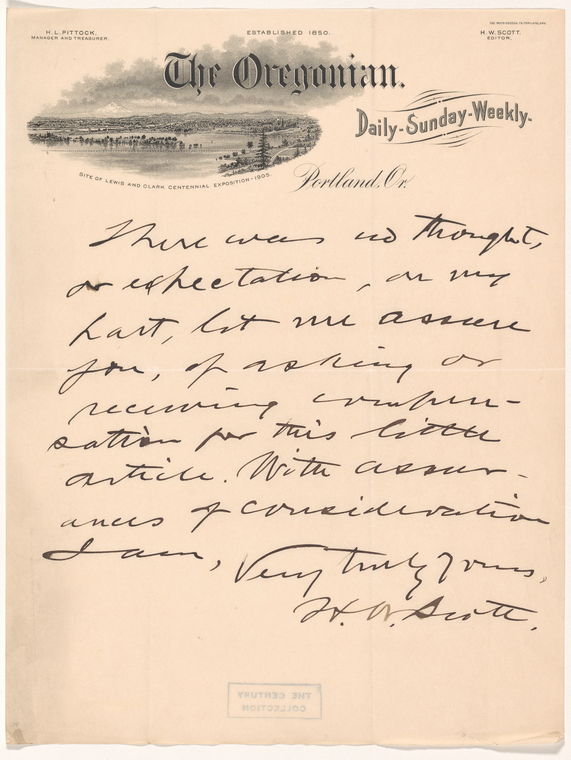 H. L. PITTOCK,
MANAGER AND TREASURER.
ESTABLISHED 1850.
H. W. SCOTT,
EDITOR.
The Oregonian.
Daily-Sunday-Weekly.
SITE OF LEWIS AND CLARK CENTENNIAL EXPOSITION-1905.
Portland, Or.
There was no thought,
or expectation, on my
part, let me assure
you, of asking or
receiving compen-
sation for this little
article. With assur-
ances of consideration
I am,
Very truly yours,
H. W. Scott.
THE CENTURY
COLLECTION